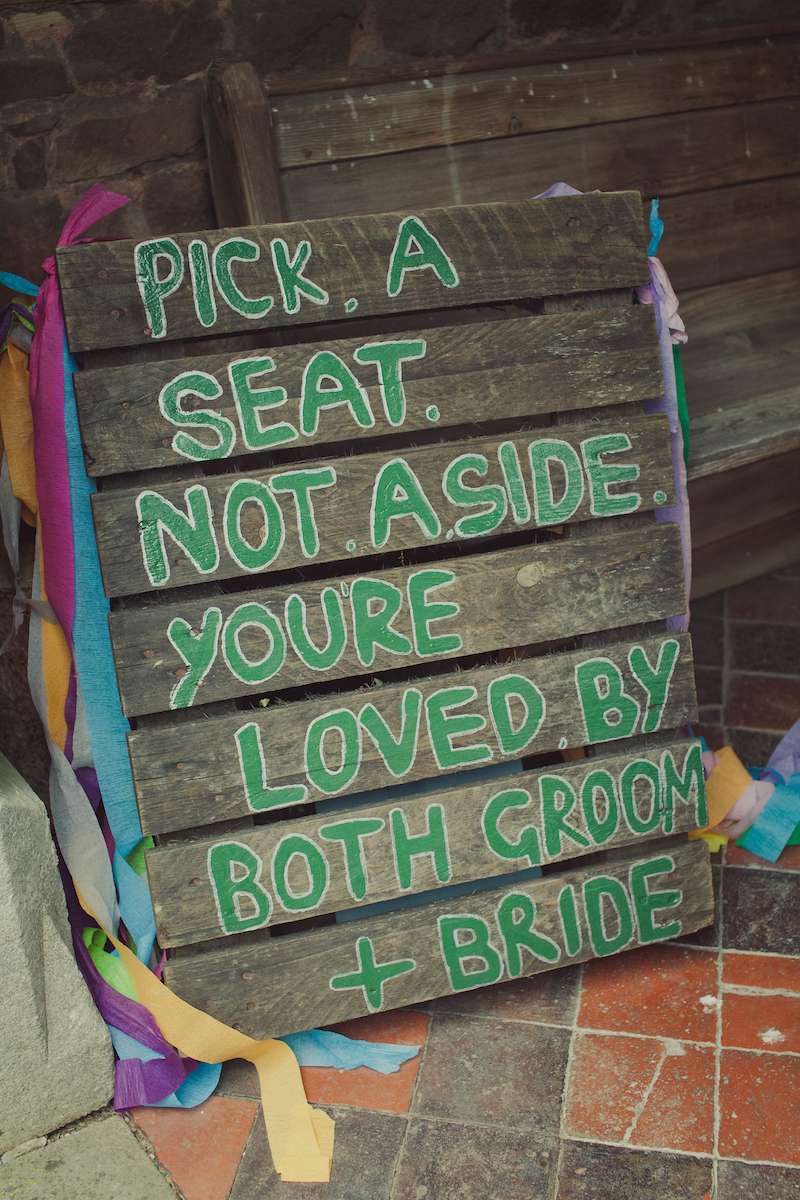 PICK. A
SEAT.
NOT. A.SIDE.
YOU'RE
LOVED. BY
BOTH GROOM
+ BRIDE